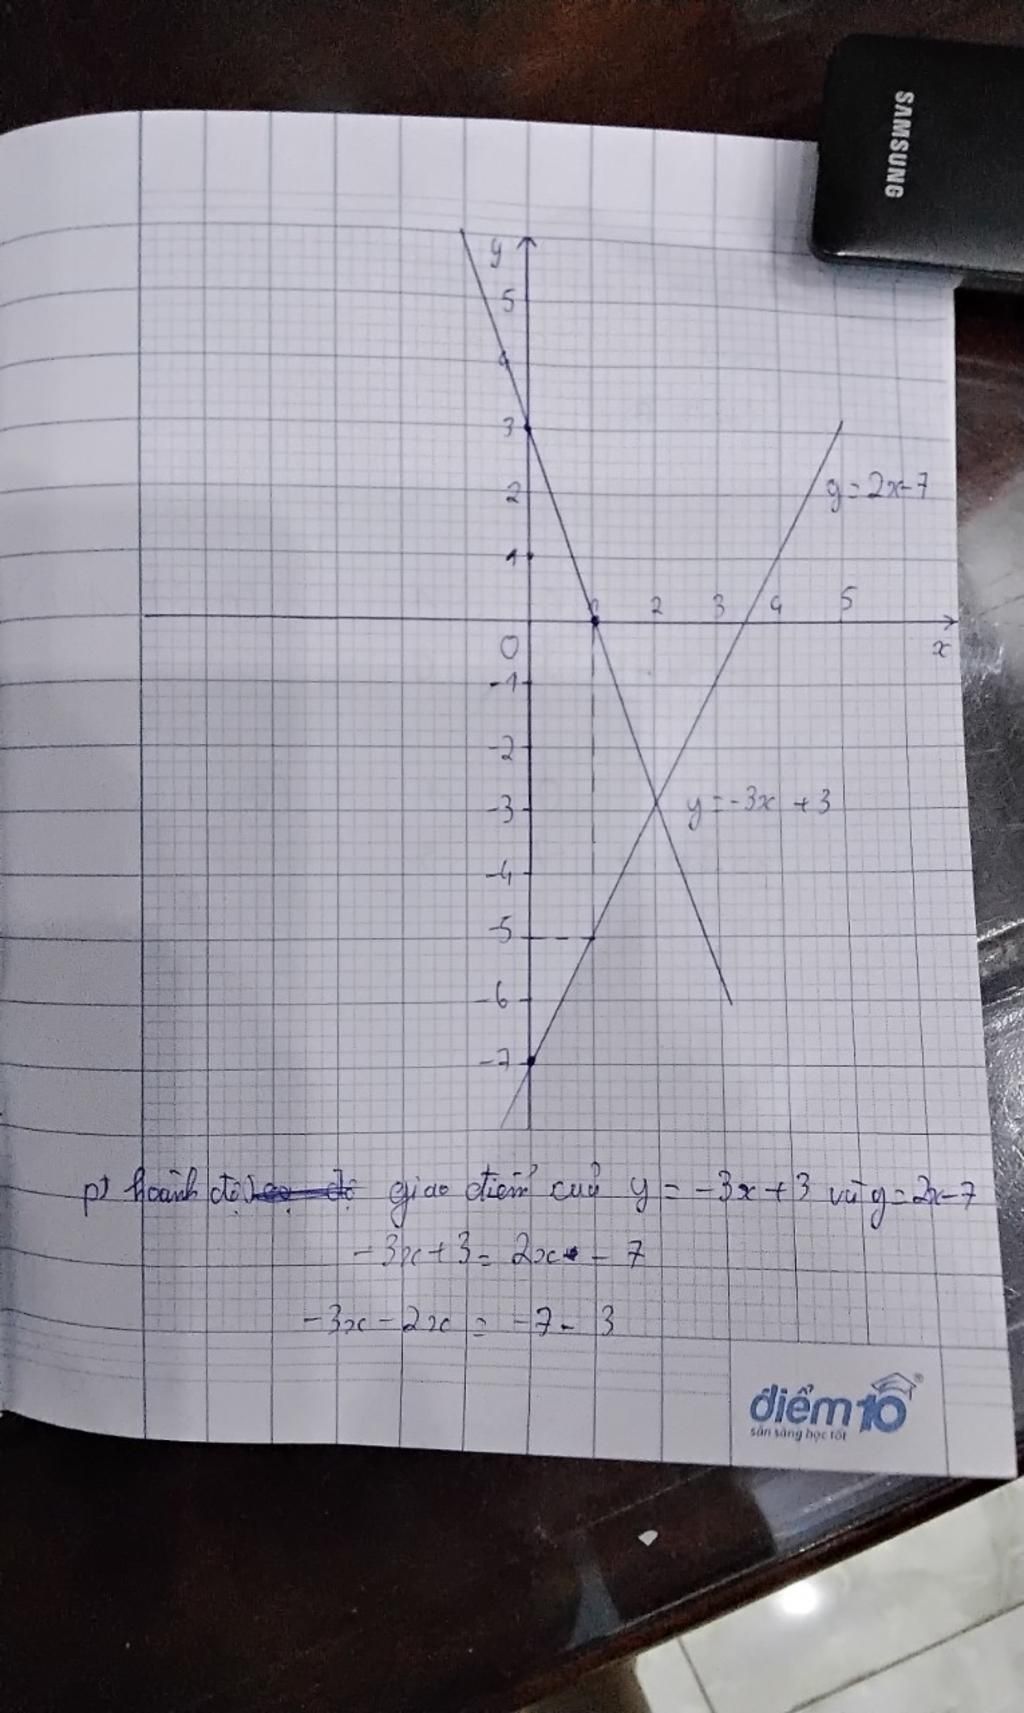 SAMSUNG
y
5
4
3
2
y = 2x-7
1
1 2 3 4 5
0
x
-1
-2
-3
y = -3x + 3
-4
-5
-6
-7
pt hoành độ giao điểm của y = -3x + 3 và y = 2x - 7
-3x + 3 = 2x - 7
-3x - 2x = -7 - 3
điểm 10
sẵn sàng học tốt